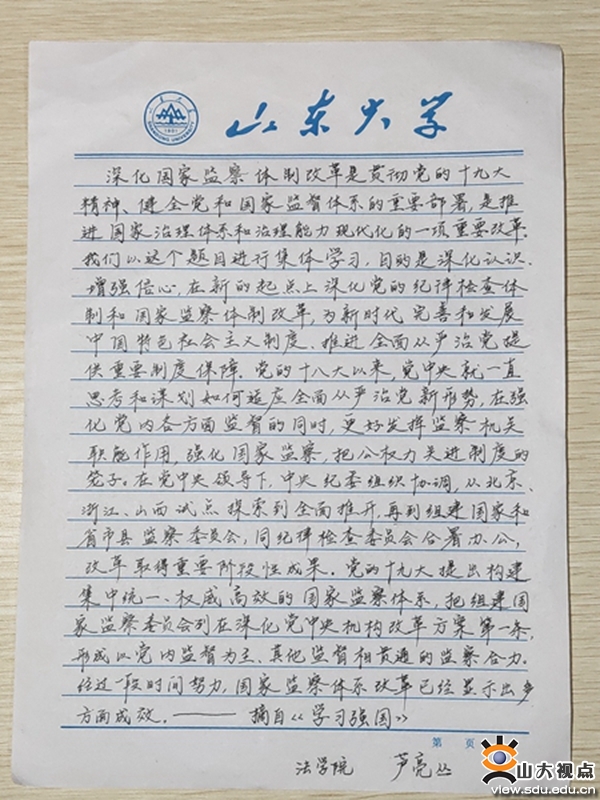 山东大学
SHANDONG UNIVERSITY
1901
深化国家监察体制改革是贯彻党的十九大
精神、健全党和国家监督体系的重要部署,是推
进国家治理体系和治理能力现代化的一项重要改革.
我们以这个题目进行集体学习,目的是深化认识、
增强信心,在新的起点上深化党的纪律检查体
制和国家监察体制改革,为新时代完善和发展
中国特色社会主义制度、推进全面从严治党提
供重要制度保障.党的十八大以来,党中央就一直
思考和谋划如何适应全面从严治党新形势,在强
化党内各方面监督的同时,更好发挥监察机关
职能作用,强化国家监察,把公权力关进制度的
笼子.在党中央领导下,中央纪委组织协调,从北京、
浙江、山西试点探索到全面推开,再到组建国家和
省市县监察委员会,同纪律检查委员会合署办公,
改革取得重要阶段性成果.党的十九大提出构建
集中统一、权威高效的国家监察体系,把组建国
家监察委员会列在深化党中央机构改革方案第一条,
形成以党内监督为主、其他监督相贯通的监察合力.
经过一段时间努力,国家监察体系改革已经显示出多
方面成效.——摘自《学习强国》
第 页
法学院 芦亮丛
山大视点
view.sdu.edu.cn